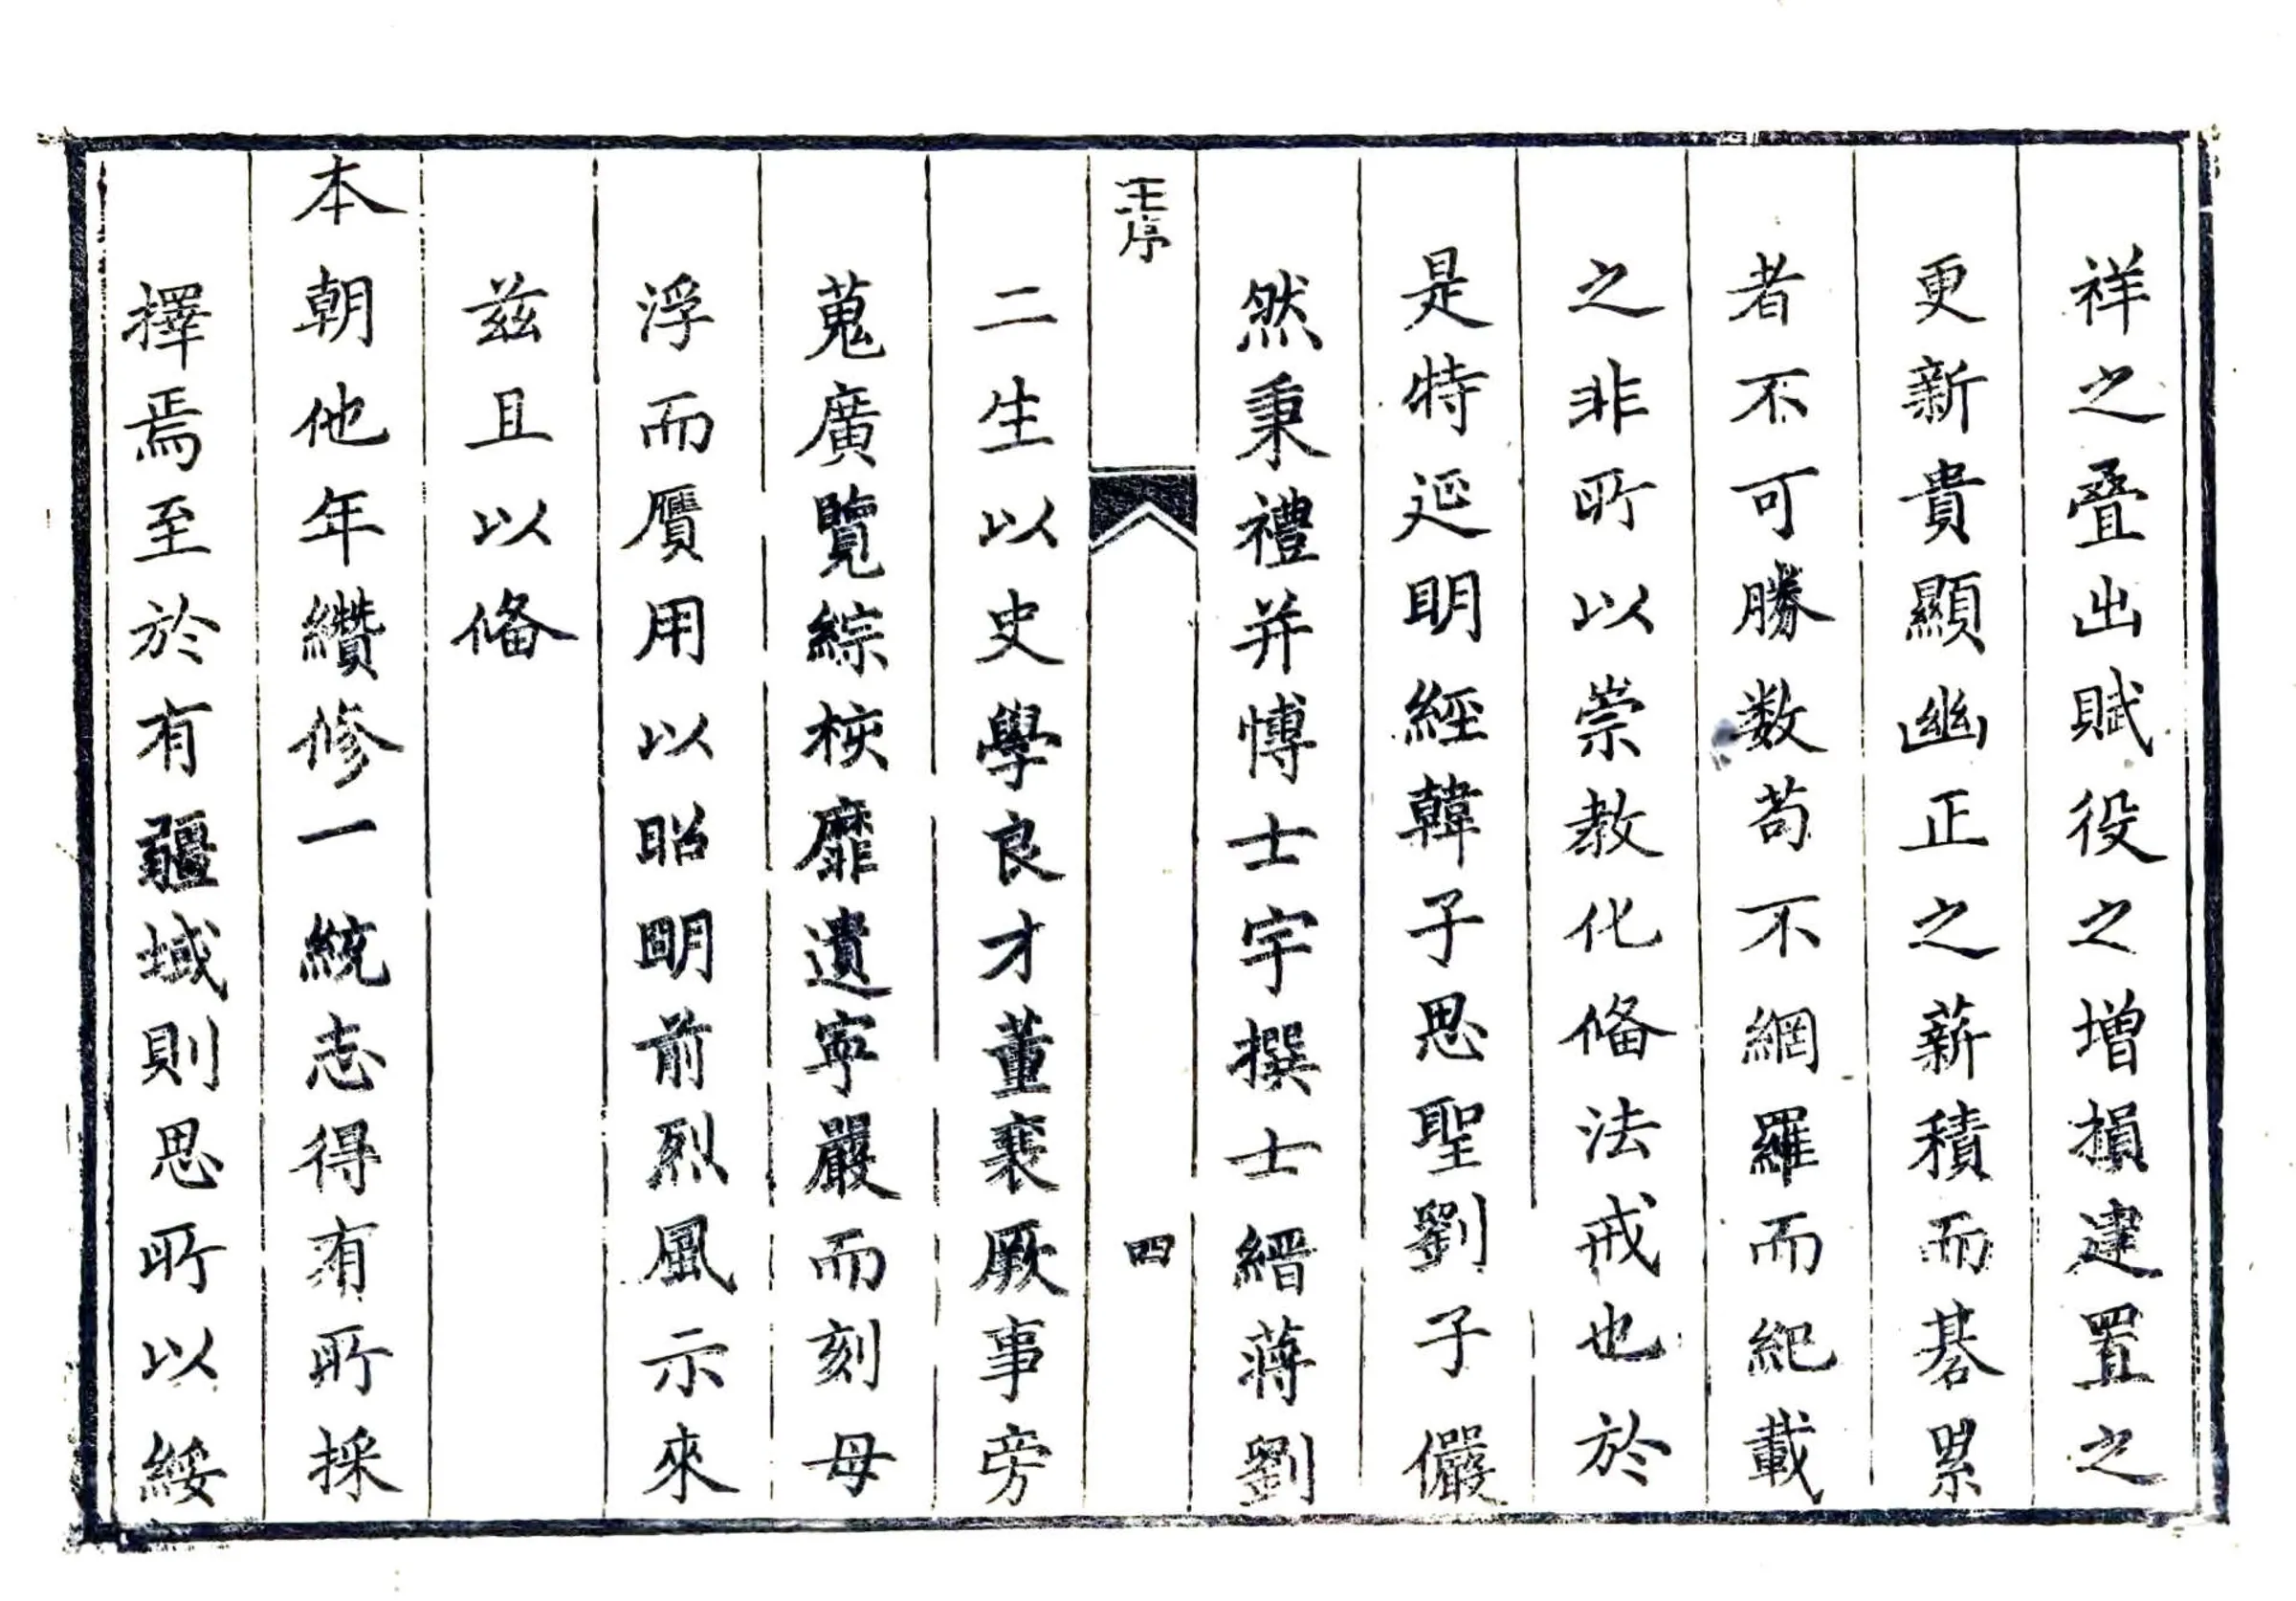 祥之叠出賦役之增損建置之
更新貴顯幽正之薪積而棊累
者不可勝数苟不網羅而紀載
之非所以崇教化俻法戒也於
是特延明經韓子思聖劉子儼
然秉禮并博士宇撰士縉蔣劉
王序
四
二生以史學良才董裘厥事旁
蒐廣覽綜核靡遺寕嚴而刻毋
浮而贋用以昭明前烈風示來
兹且以俻
本朝他年纘修一統志得有所採
擇焉至於有疆域則思所以綏